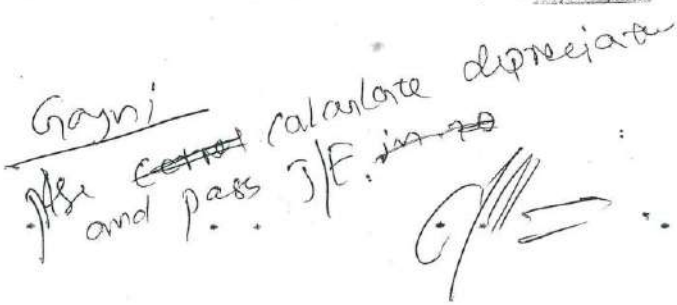 Gayni
Plse calculate depreciate
and pass J/E.